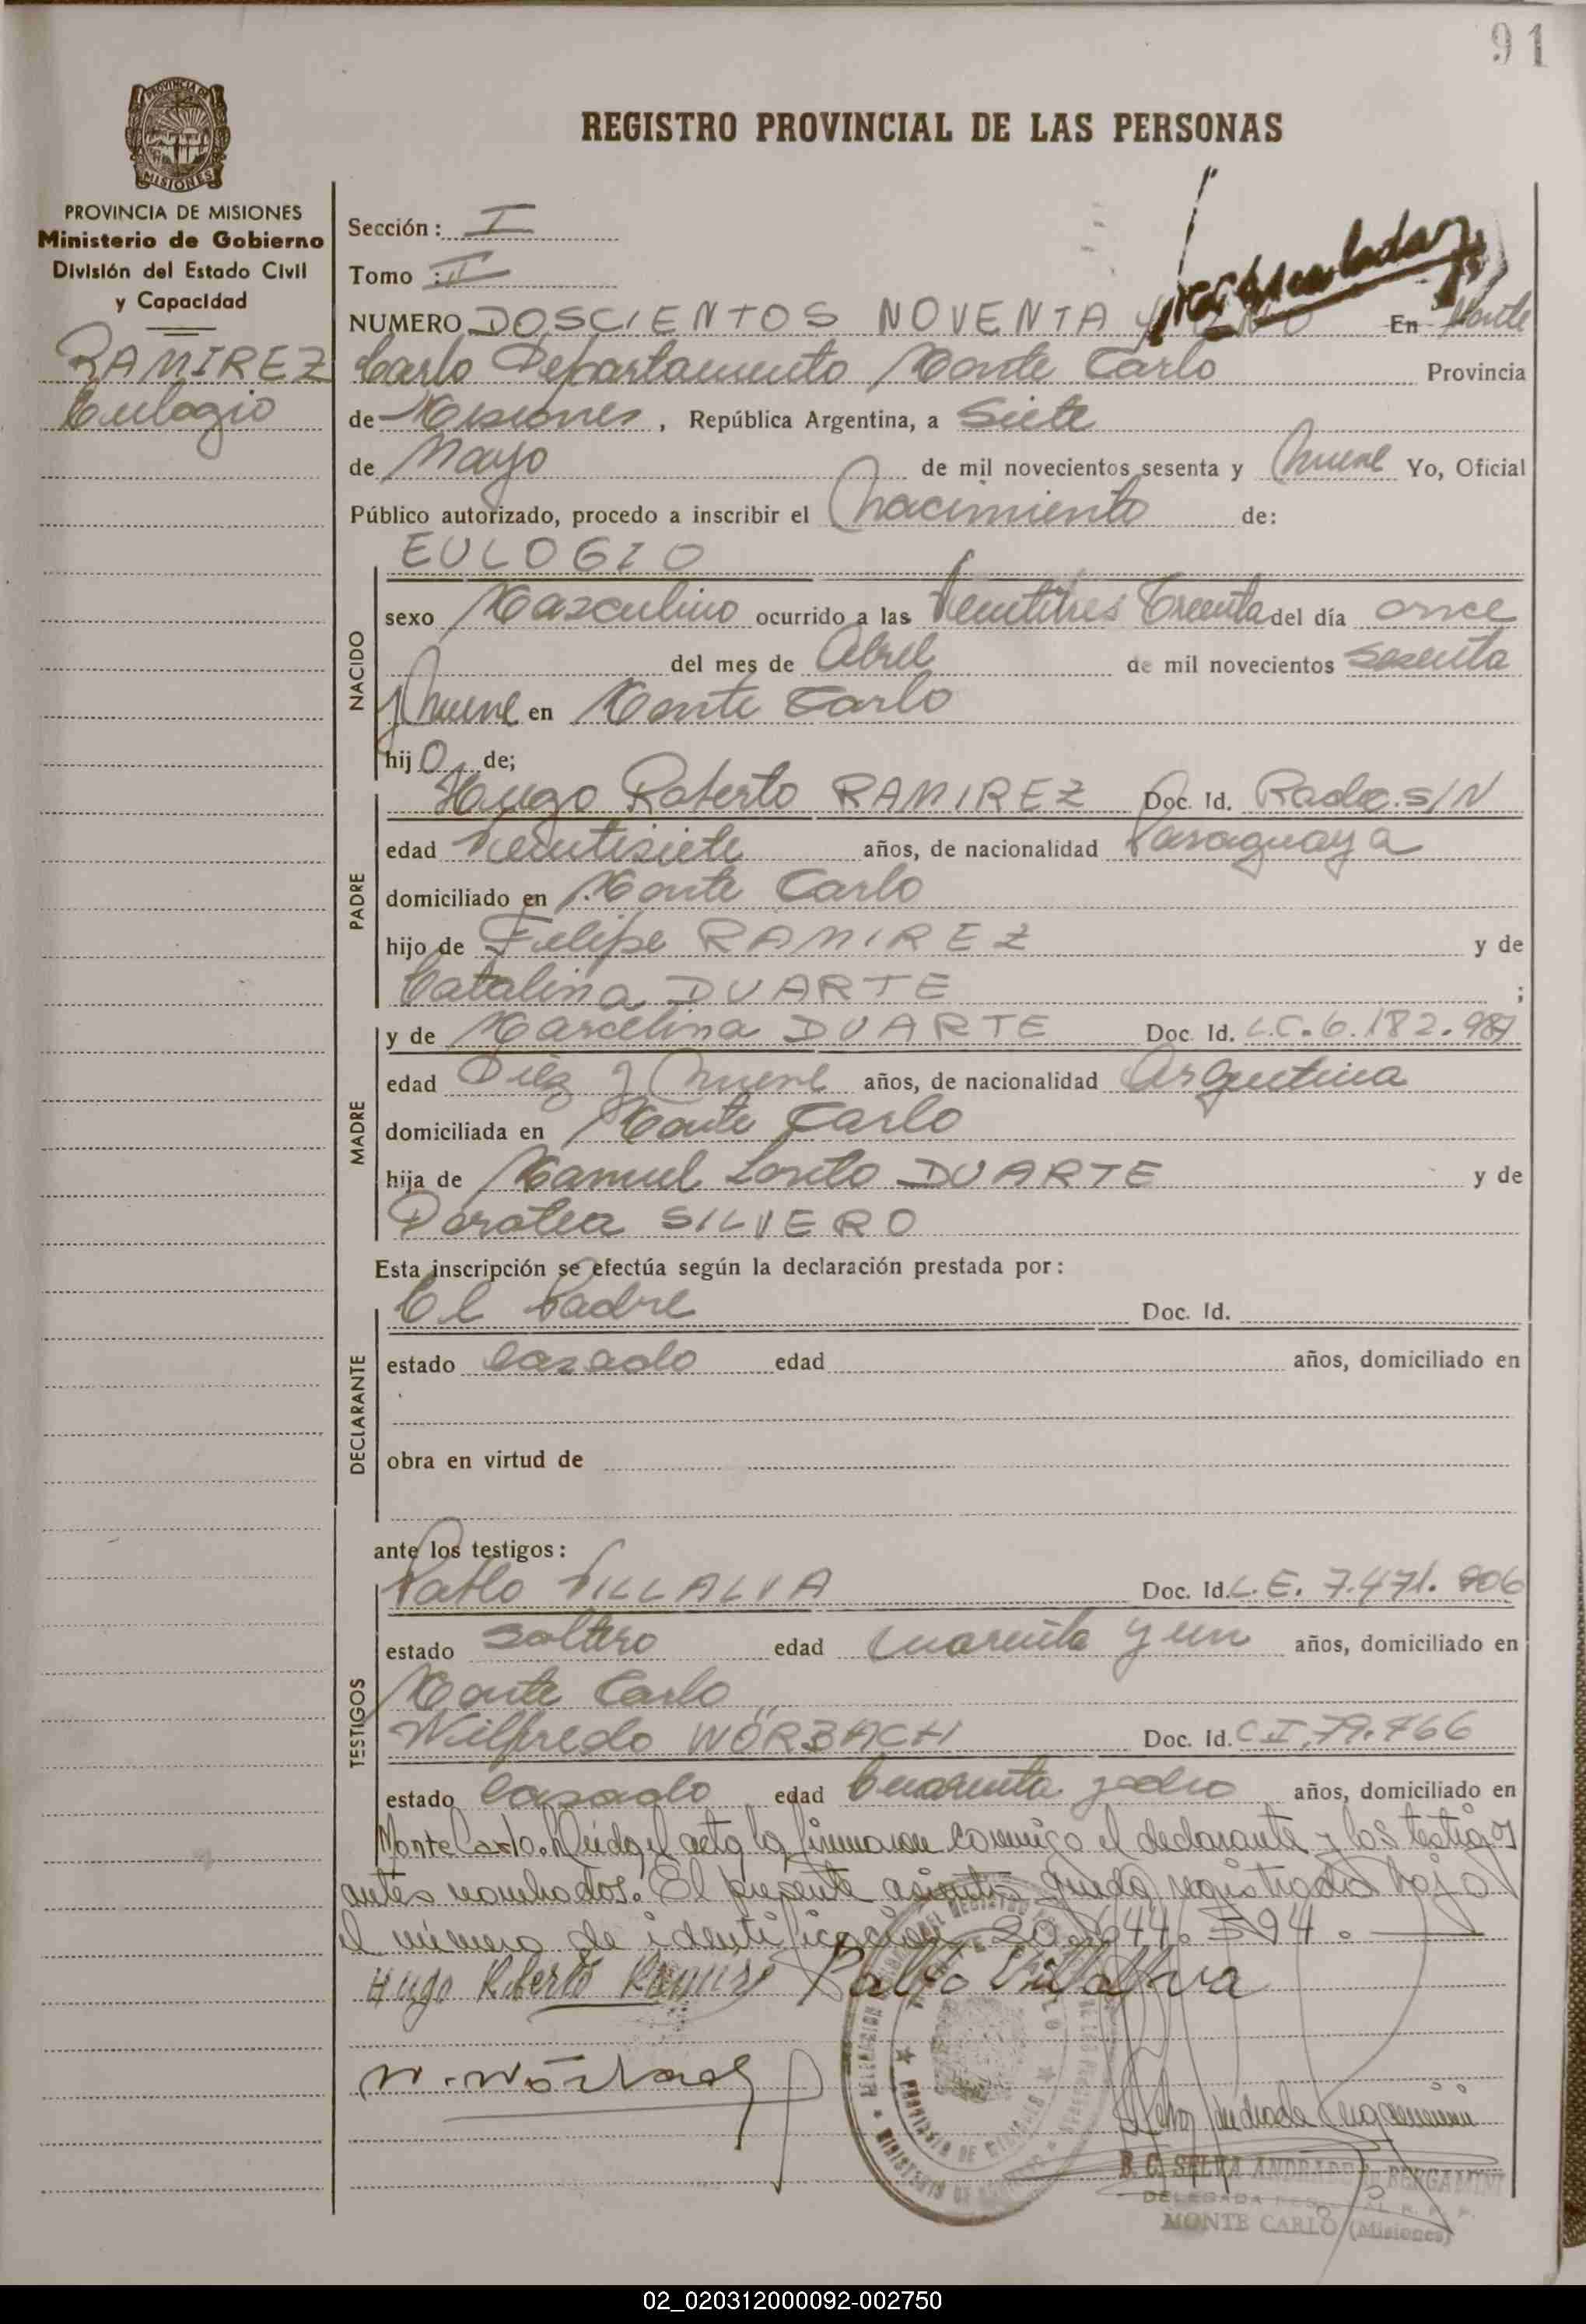 91
PROVINCIA DE MISIONES
REGISTRO PROVINCIAL DE LAS PERSONAS
PROVINCIA DE MISIONES
Ministerio de Gobierno
División del Estado Civil
y Capacidad
RAMIREZ
Eulogio
Sección: I
Tomo: II
NUMERO DOSCIENTOS NOVENTA Y UNO En Monte
Carlo Departamento Monte Carlo Provincia
de Misiones, República Argentina, a Siete
de Mayo de mil novecientos sesenta y nueve Yo, Oficial
Público autorizado, procedo a inscribir el nacimiento de:
NACIDO
EULOGIO
sexo Masculino ocurrido a las Veintitres Treinta del día once
del mes de Abril de mil novecientos sesenta
y nueve en Monte Carlo
hijo de;
PADRE
Hugo Roberto RAMIREZ Doc. Id. Radic. S/N
edad Veintisiete años, de nacionalidad Paraguaya
domiciliado en Monte Carlo
hijo de Felipe RAMIREZ y de
Catalina DUARTE ;
MADRE
y de Marcelina DUARTE Doc. Id. L.C. 6.182.987
edad Diez y nueve años, de nacionalidad Argentina
domiciliada en Monte Carlo
hija de Manuel Loreto DUARTE y de
Dorotea SILVERO
Esta inscripción se efectúa según la declaración prestada por:
DECLARANTE
El Padre Doc. Id.
estado casado edad años, domiciliado en
obra en virtud de
ante los testigos:
TESTIGOS
Pablo VILLALVA Doc. Id. L.E. 7.471.906
estado soltero edad Cuarenta y un años, domiciliado en
Monte Carlo
Wilfredo WÖRBACH Doc. Id. C.I. 79.766
estado casado edad Cuarenta y ocho años, domiciliado en
Monte Carlo. Leida el acta la firmaron conmigo el declarante y los testigos
antes nombrados. El presente asiento queda registrado bajo
el número de identificacion 20.644.594.
Hugo Roberto Ramirez Pablo Villalva
W. Wörbach
B. C. SELVA ANDRADE DE BERGAMINI
DELEGADA
MONTE CARLO (Misiones)
02_020312000092-002750